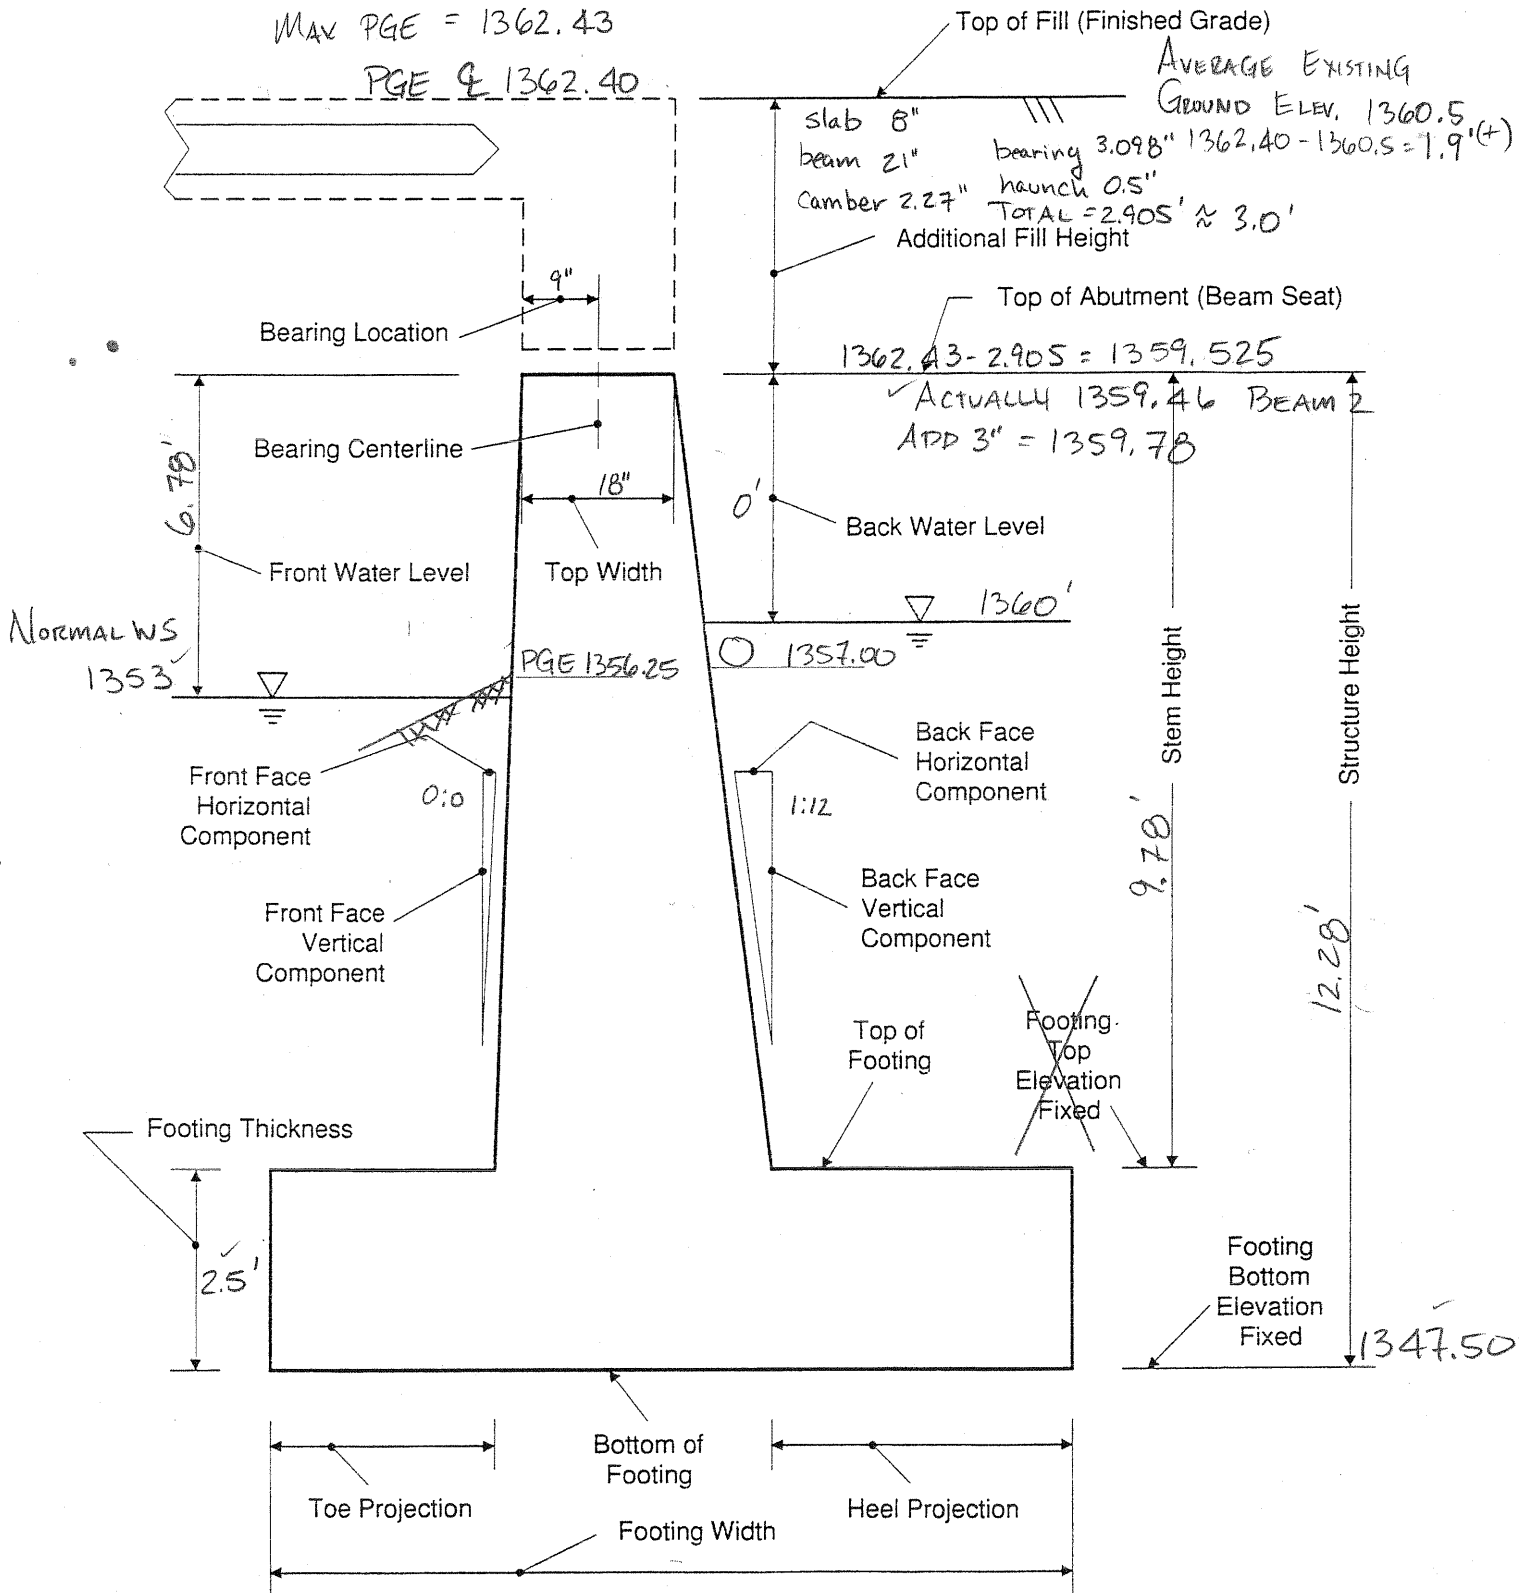 MAX PGE = 1362.43
PGE ℄ 1362.40
Top of Fill (Finished Grade)
AVERAGE EXISTING
GROUND ELEV. 1360.5
1362.40 - 1360.5 = 1.9'(+)
slab 8"
beam 21"
camber 2.27"
bearing 3.098"
haunch 0.5"
TOTAL = 2.905' ≈ 3.0'
Additional Fill Height
9"
Bearing Location
Top of Abutment (Beam Seat)
1362.43 - 2.905 = 1359.525
✓ ACTUALLY 1359.46 BEAM 2
ADD 3" = 1359.78
Bearing Centerline
6.78'
18"
0'
Back Water Level
Front Water Level
Top Width
NORMAL WS
1353 ✓
1360'
PGE 1356.25
O 1357.00
Stem Height
Structure Height
Front Face
Horizontal
Component
0:0
Back Face
Horizontal
Component
1:12
9.78'
12.28'
Front Face
Vertical
Component
Back Face
Vertical
Component
Top of
Footing
Footing
Top
Elevation
Fixed
Footing Thickness
2.5' ✓
Footing
Bottom
Elevation
Fixed
1347.50 ✓
Bottom of
Footing
Toe Projection
Heel Projection
Footing Width